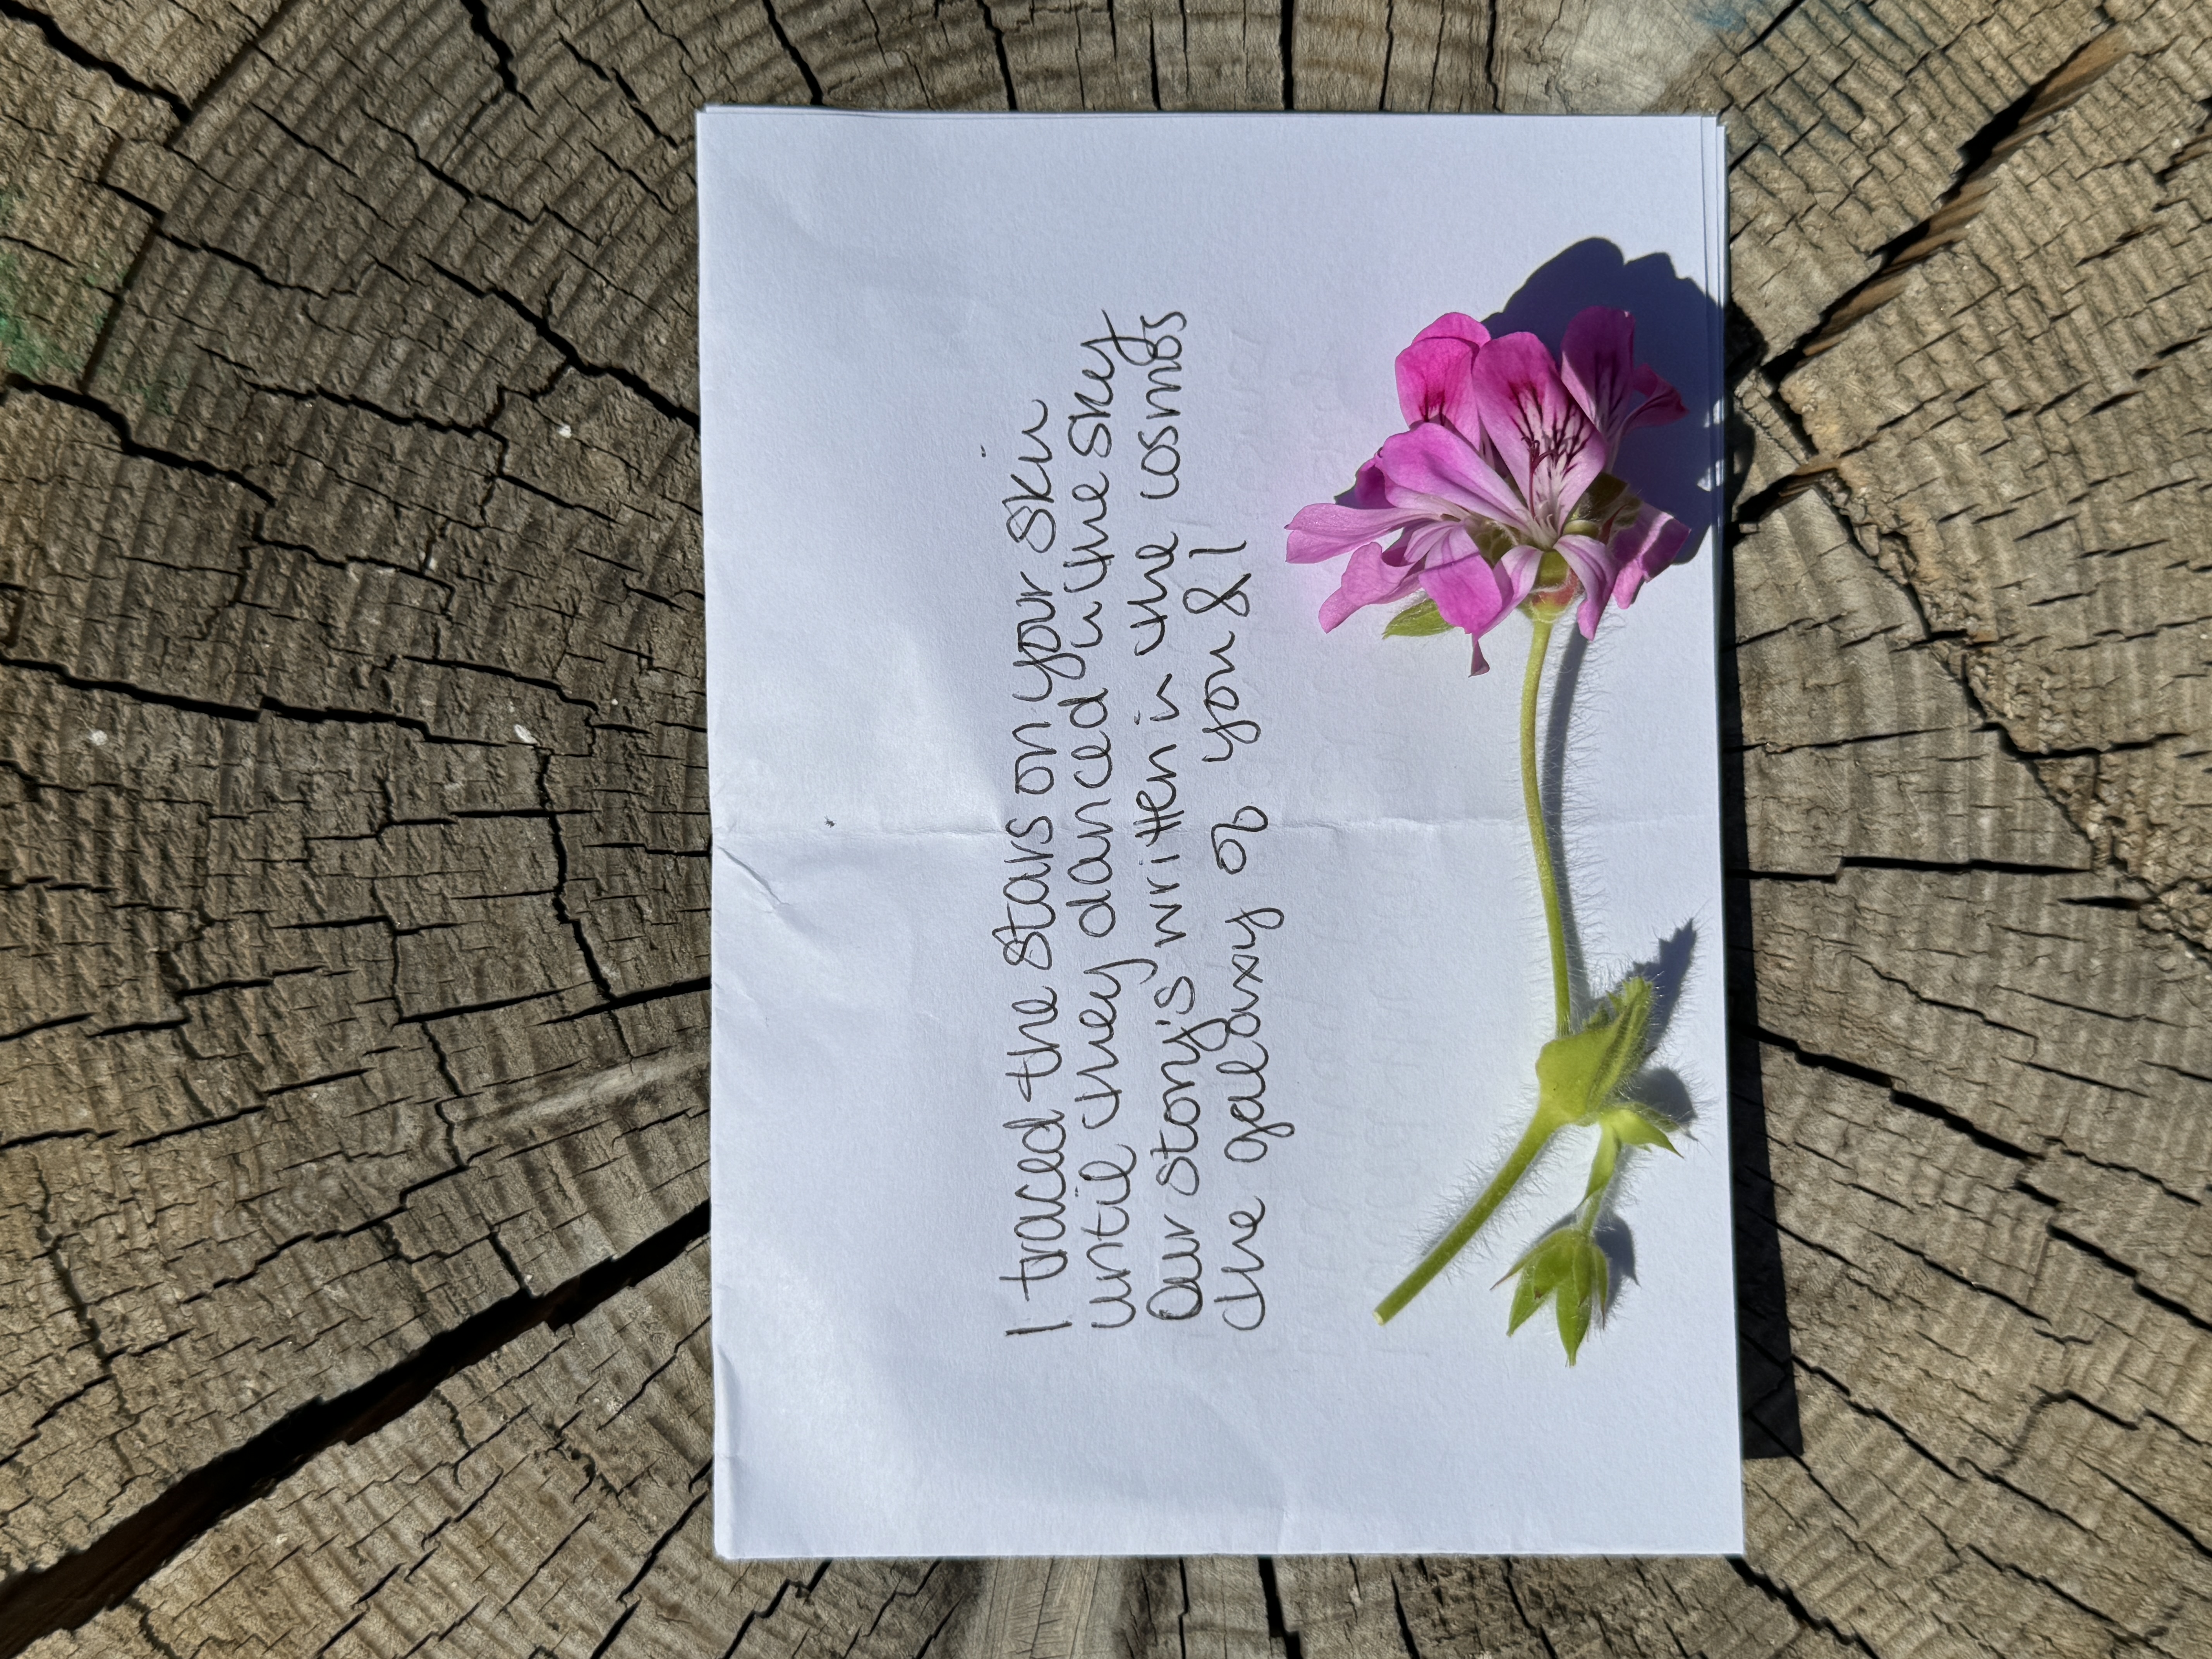 I traced the stars on your skin
until they danced in the sky
Our story's written in the cosmos
the galaxy of you & I